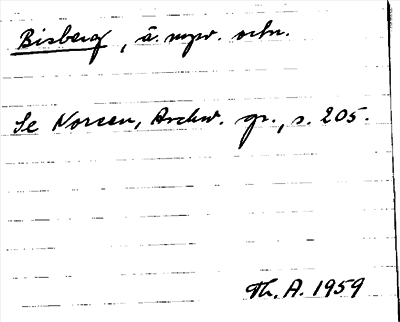 Bisberg, ä. mpv. ortn.
Se Noreen, Archiv. gr., s. 205.
Th. A. 1959